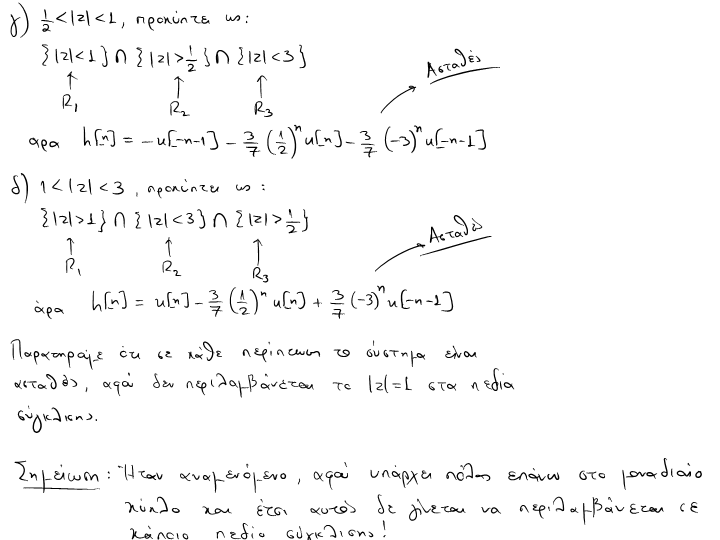 γ) 1/2 < |z| < 1, προκύπτει ως:
{|z|<1} ∩ {|z|>1/2} ∩ {|z|<3}
↑ ↑ ↑ Ασταθές
R₁ R₂ R₃
άρα h[n] = -u[-n-1] - 3/7 (1/2)ⁿ u[n] - 3/7 (-3)ⁿ u[-n-1]
δ) 1 < |z| < 3, προκύπτει ως:
{|z|>1} ∩ {|z|<3} ∩ {|z|>1/2}
↑ ↑ ↑ Ασταθές
R₁ R₂ R₃
άρα h[n] = u[n] - 3/7 (1/2)ⁿ u[n] + 3/7 (-3)ⁿ u[-n-1]
Παρατηρούμε ότι σε κάθε περίπτωση το σύστημα είναι
ασταθές, αφού δεν περιλαμβάνεται το |z|=1 στα πεδία
σύγκλισης.
Σημείωση: Ήταν αναμενόμενο, αφού υπάρχει πόλος επάνω στο μοναδιαίο
κύκλο και έτσι αυτός δε γίνεται να περιλαμβάνεται σε
κάποιο πεδίο σύγκλισης!